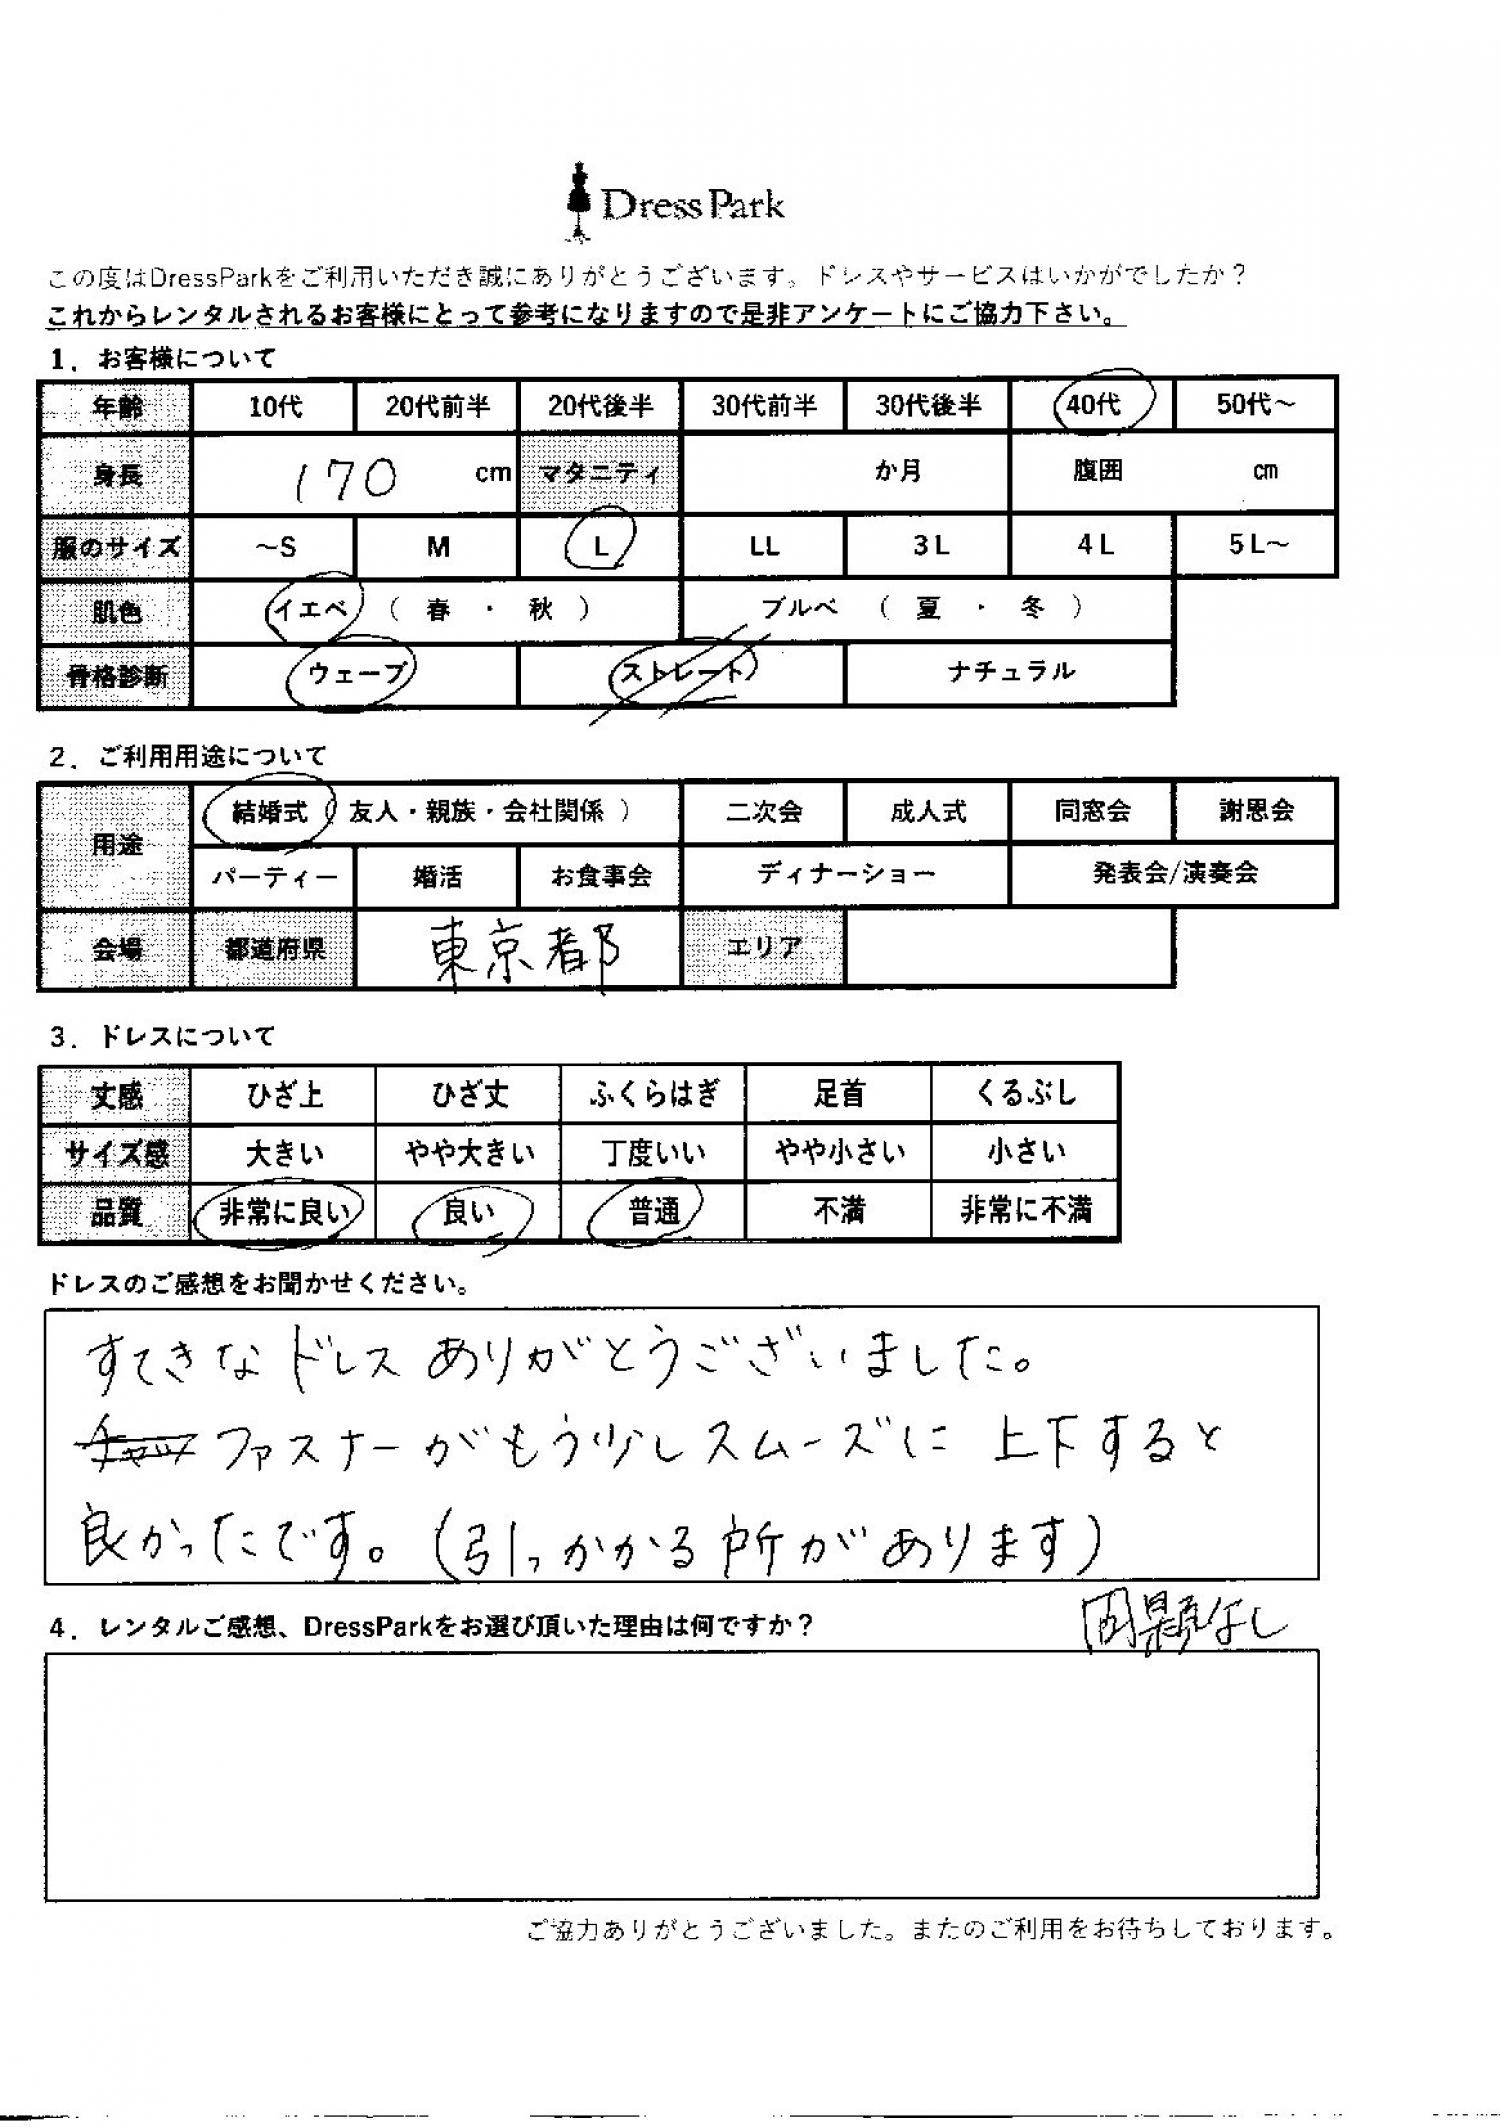 Dress Park
この度はDressParkをご利用いただき誠にありがとうございます。ドレスやサービスはいかがでしたか？
これからレンタルされるお客様にとって参考になりますので是非アンケートにご協力下さい。
1．お客様について
年齢 10代 20代前半 20代後半 30代前半 30代後半 40代 50代～
身長 170 cm マタニティ か月 腹囲 cm
服のサイズ ～S M L LL 3L 4L 5L～
肌色 イエベ（ 春 ・ 秋 ） ブルベ （ 夏 ・ 冬 ）
骨格診断 ウェーブ ストレート ナチュラル
2．ご利用用途について
用途 結婚式（ 友人・親族・会社関係 ） 二次会 成人式 同窓会 謝恩会
パーティー 婚活 お食事会 ディナーショー 発表会/演奏会
会場 都道府県 東京都 エリア
3．ドレスについて
丈感 ひざ上 ひざ丈 ふくらはぎ 足首 くるぶし
サイズ感 大きい やや大きい 丁度いい やや小さい 小さい
品質 非常に良い 良い 普通 不満 非常に不満
ドレスのご感想をお聞かせください。
すてきなドレスありがとうございました。
チャック ファスナーがもう少しスムーズに上下すると
良かったです。（引っかかる所があります）
問題なし
4．レンタルご感想、DressParkをお選び頂いた理由は何ですか？
ご協力ありがとうございました。またのご利用をお待ちしております。